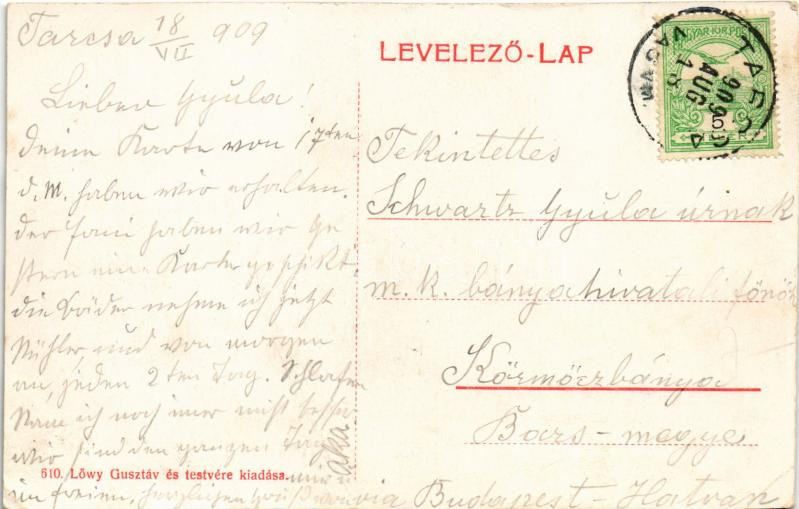 Tarcsa 18/VII 909
Lieber Gyula!
deine Karte von 17ten
d. M. haben wir erhalten.
der fani haben wir ge
stern eine Karte geschikt.
die Bäder nehme ich jetzt
kühler und von morgen
an, jeden 2ten Tag. Schlafen
kann ich noch imer nicht besser
wir sind den ganzen Tag
im freien, herzlichen Gruß von
610. Löwy Gusztáv és testvére kiadása.
LEVELEZŐ-LAP
MAGYAR KIR. POSTA
5
TARCSA
VAS VM.
909 AUG 18
Tekintettes
Schwartz Gyula úrnak
m. k. bányahivatali főnök
Körmöczbánya
Bars-megye
via Budapest-Hatvan